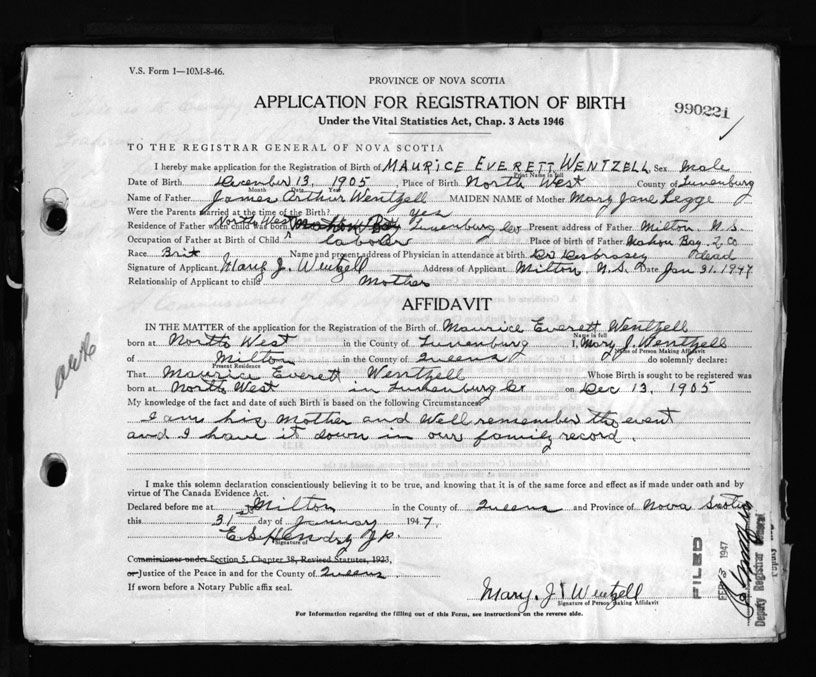 V.S. Form 1—10M-8-46.
PROVINCE OF NOVA SCOTIA
APPLICATION FOR REGISTRATION OF BIRTH
990221
Under the Vital Statistics Act, Chap. 3 Acts 1946
TO THE REGISTRAR GENERAL OF NOVA SCOTIA
I hereby make application for the Registration of Birth of MAURICE EVERETT WENTZELL Sex Male
Print Name in full
Date of Birth December 13, 1905, Place of Birth North West County of Lunenburg
Month Date Year
Name of Father James Arthur Wentzell MAIDEN NAME of Mother Mary Jane Legge
Were the Parents married at the time of the Birth? Yes
Residence of Father when child was born North West Mahon Bay Lunenburg Co Present address of Father Milton. N.S.
Occupation of Father at Birth of Child laborer Place of birth of Father Mahon Bay. L. Co
Race Brit Name and present address of Physician in attendance at birth Dr Desbrasey dead
Signature of Applicant Mary J. Wentzell Address of Applicant Milton, N.S. Date Jan 31. 1947
Relationship of Applicant to child Mother
AFFIDAVIT
IN THE MATTER of the application for the Registration of the Birth of Maurice Everett Wentzell
Name in full
born at North West in the County of Lunenburg I, Mary J. Wentzell
Name of Person Making Affidavit
of Milton in the County of Queens do solemnly declare:
Present Residence
That Maurice Everett Wentzell Whose Birth is sought to be registered was
born at North West in Lunenburg Co on Dec 13, 1905
My knowledge of the fact and date of such Birth is based on the following Circumstances
I am his Mother and Well remember the event
and I have it down in our family record.
I make this solemn declaration conscientiously believing it to be true, and knowing that it is of the same force and effect as if made under oath and by
virtue of The Canada Evidence Act.
Declared before me at Milton in the County of Queens and Province of Nova Scotia
this 31st day of January 1947.
E S Hendry J.P.
Signature of
Commissioner under Section 5, Chapter 38, Revised Statutes, 1923,
or Justice of the Peace in and for the County of Queens
If sworn before a Notary Public affix seal.
Mary. J. Wentzell
Signature of Person Making Affidavit
For Information regarding the filling out of this Form, see instructions on the reverse side.
FILED
FEB 3 1947
Deputy Registrar General